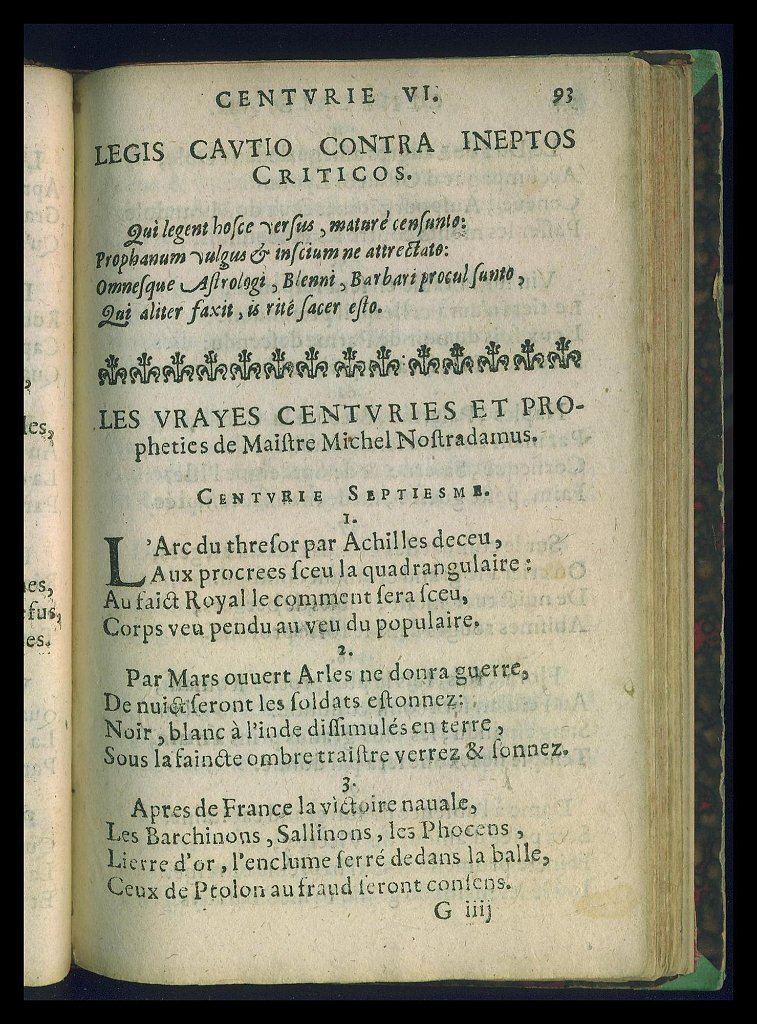 les,
es,
efus,
es.
CENTVRIE VI. 93
LEGIS CAVTIO CONTRA INEPTOS
CRITICOS.
Qui legent hoſce verſus, maturé cenſunto:
Prophanum vulgus & inſcium ne attrectato:
Omneſque Aſtrologi, Blenni, Barbari procul ſunto,
Qui aliter faxit, is rité ſacer eſto.
LES VRAYES CENTVRIES ET PRO-
pheties de Maiſtre Michel Noſtradamus.
CENTVRIE SEPTIESME.
1.
L'Arc du threſor par Achilles deceu,
Aux procrees ſceu la quadrangulaire:
Au faict Royal le comment ſera ſceu,
Corps veu pendu au veu du populaire.
2.
Par Mars ouuert Arles ne donra guerre,
De nuict ſeront les ſoldats eſtonnez:
Noir, blanc à l'inde diſſimulés en terre,
Sous la faincte ombre traiſtre verrez & ſonnez.
3.
Apres de France la victoire nauale,
Les Barchinons, Sallinons, les Phocens,
Lierre d'or, l'enclume ſerré dedans la balle,
Ceux de Ptolon au fraud ſeront conſens.
G iiij